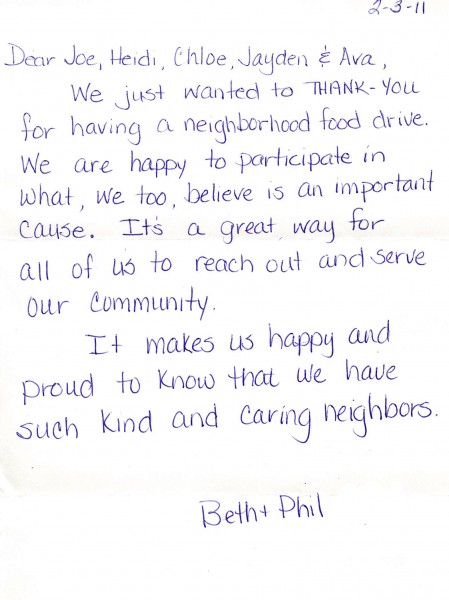 2-3-11
Dear Joe, Heidi, Chloe, Jayden & Ava,
We just wanted to THANK-YOU
for having a neighborhood food drive.
We are happy to participate in
what, we too, believe is an important
cause. It's a great way for
all of us to reach out and serve
our community.
It makes us happy and
proud to know that we have
such kind and caring neighbors.
Beth + Phil